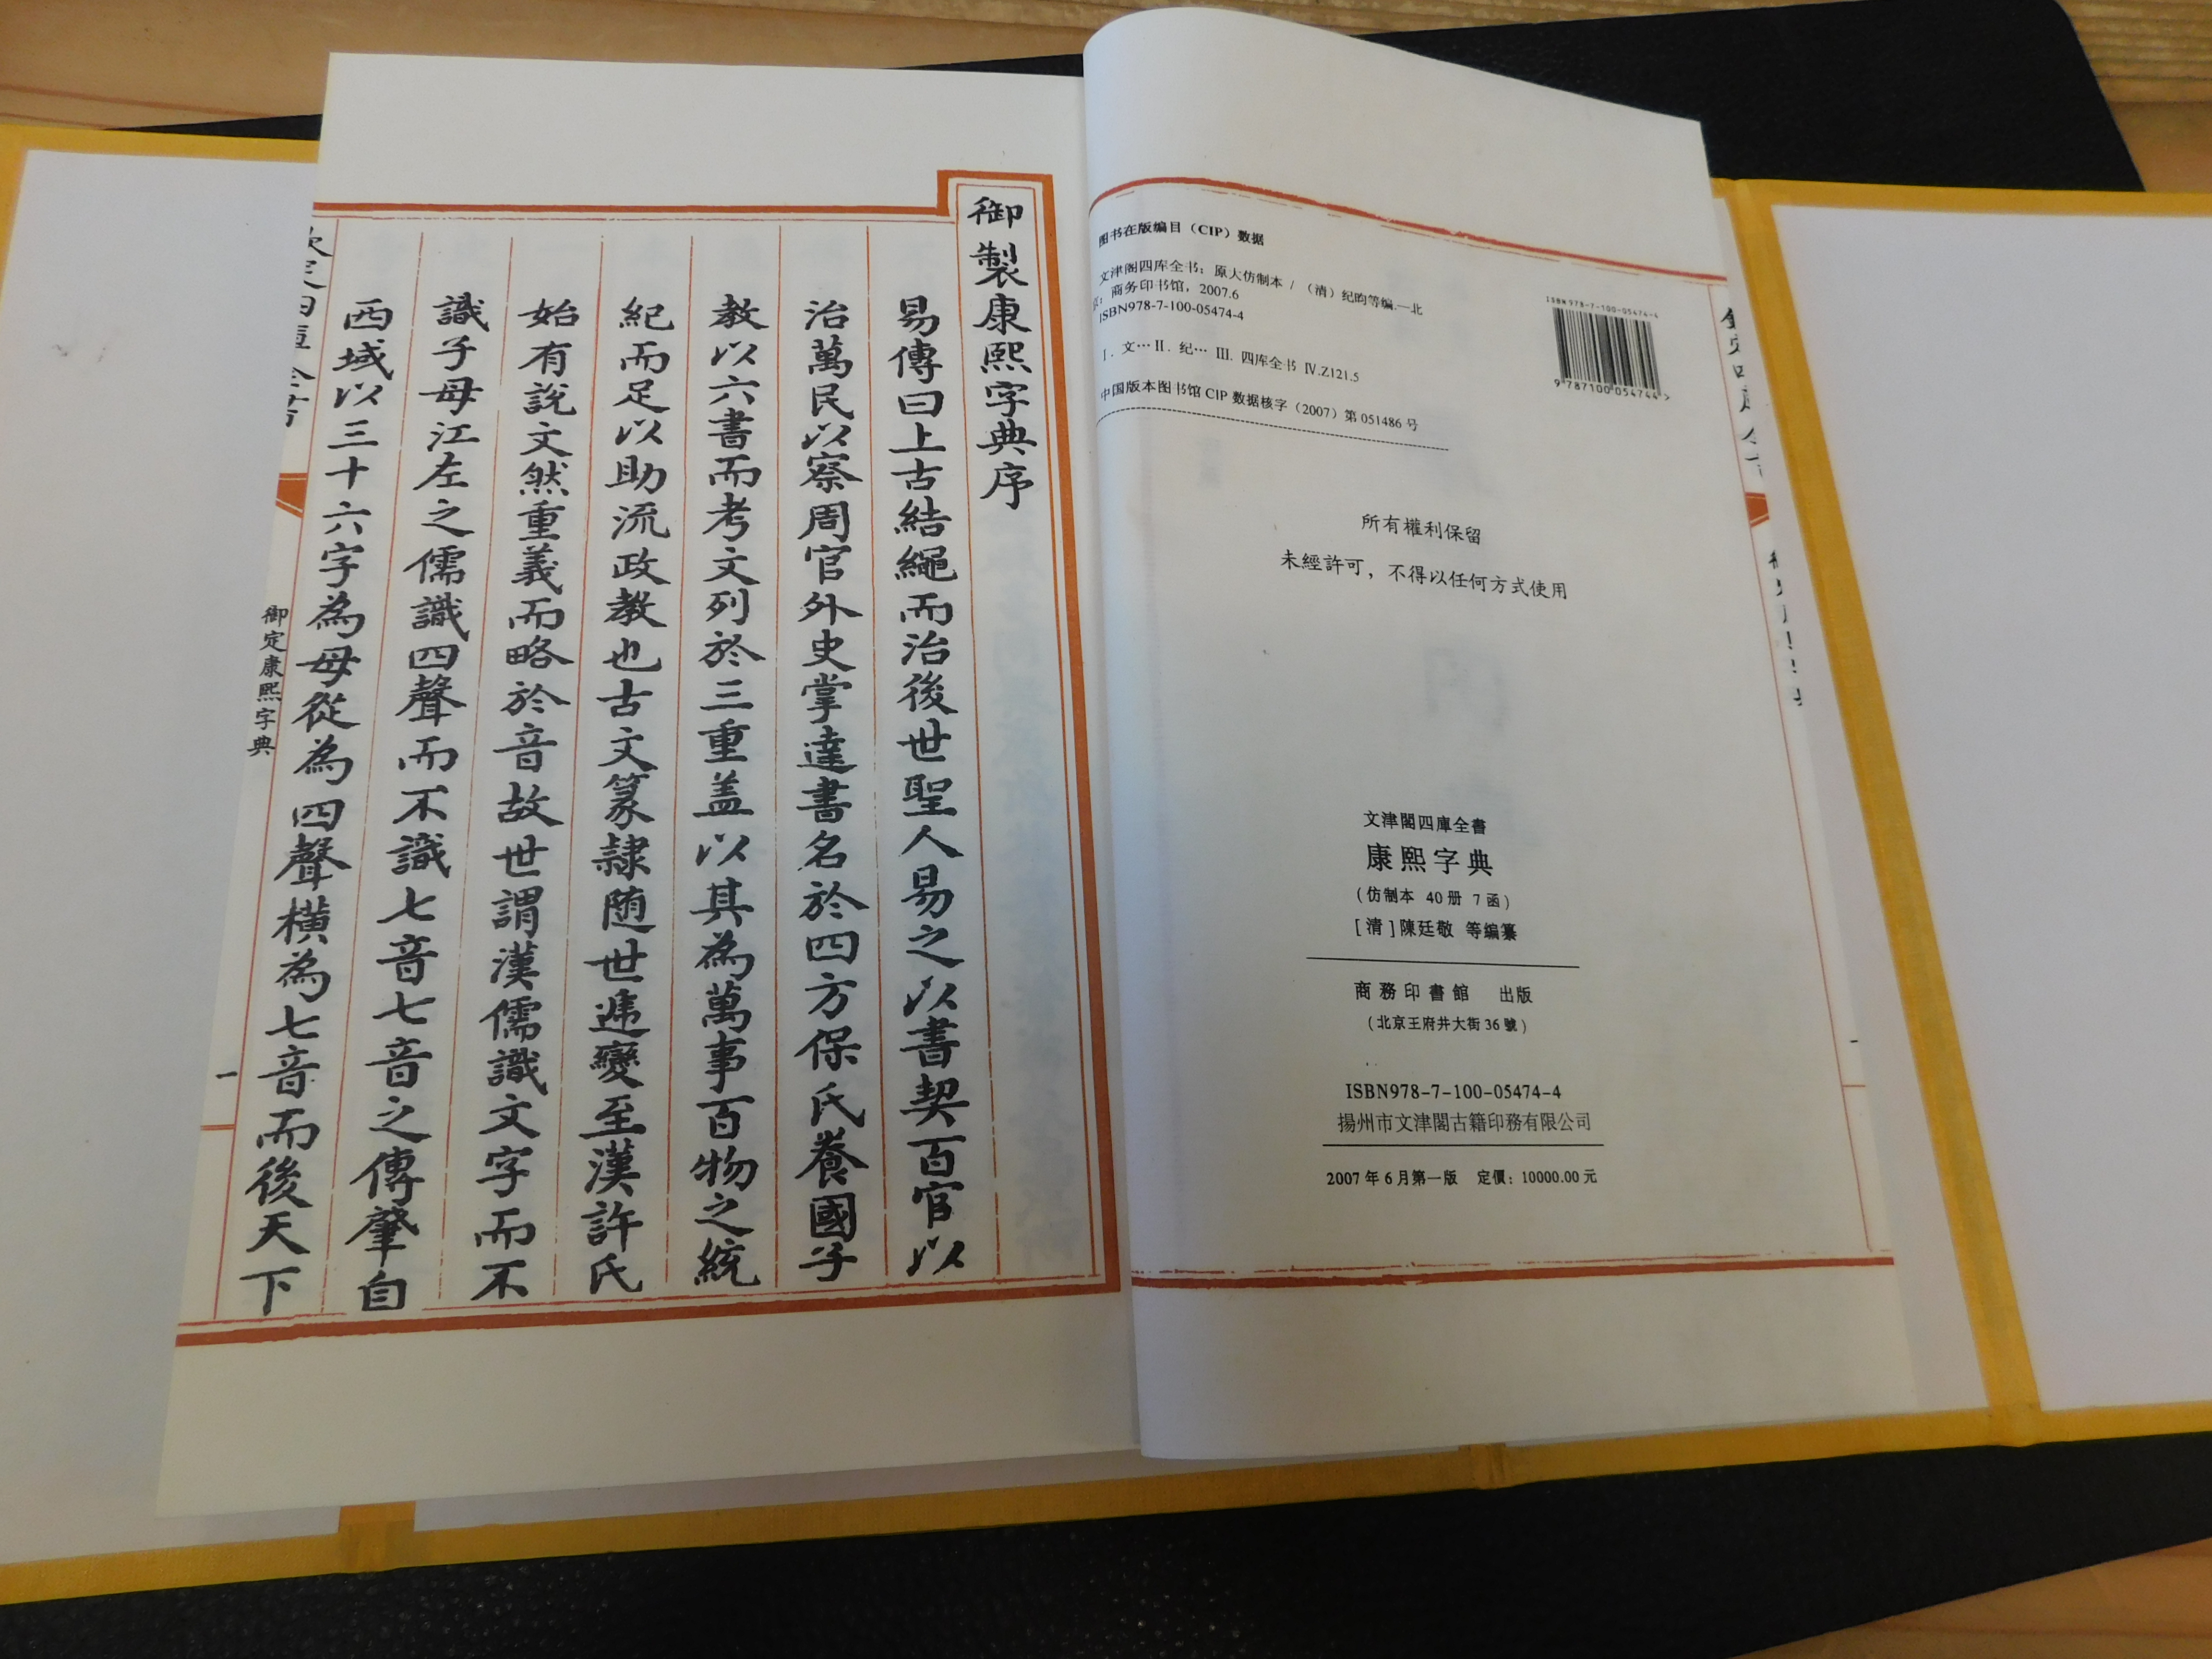 图书在版编目（CIP）数据
文津阁四库全书：原大仿制本 / （清）纪昀等编.—北
京：商务印书馆，2007.6
ISBN978-7-100-05474-4
Ⅰ. 文… Ⅱ. 纪… Ⅲ. 四库全书 Ⅳ.Z121.5
中国版本图书馆 CIP 数据核字（2007）第 051486 号
ISBN 978-7-100-05474-4
9 787100 054744 >
所有權利保留
未經許可，不得以任何方式使用
文津閣四庫全書
康熙字典
(仿制本 40册 7函)
[清]陳廷敬 等编纂
商務印書館 出版
(北京王府井大街36號)
ISBN978-7-100-05474-4
揚州市文津閣古籍印務有限公司
2007年6月第一版 定價：10000.00元
御製康熙字典序
易傳曰上古結繩而治後世聖人易之以書契百官以
治萬民以察周官外史掌達書名於四方保氏養國子
教以六書而考文列於三重盖以其為萬事百物之統
紀而足以助流政教也古文篆隸随世逓變至漢許氏
始有說文然重義而略於音故世謂漢儒識文字而不
識子母江左之儒識四聲而不識七音七音之傳肇自
西域以三十六字為母從為四聲橫為七音而後天下
御定康熙字典
一